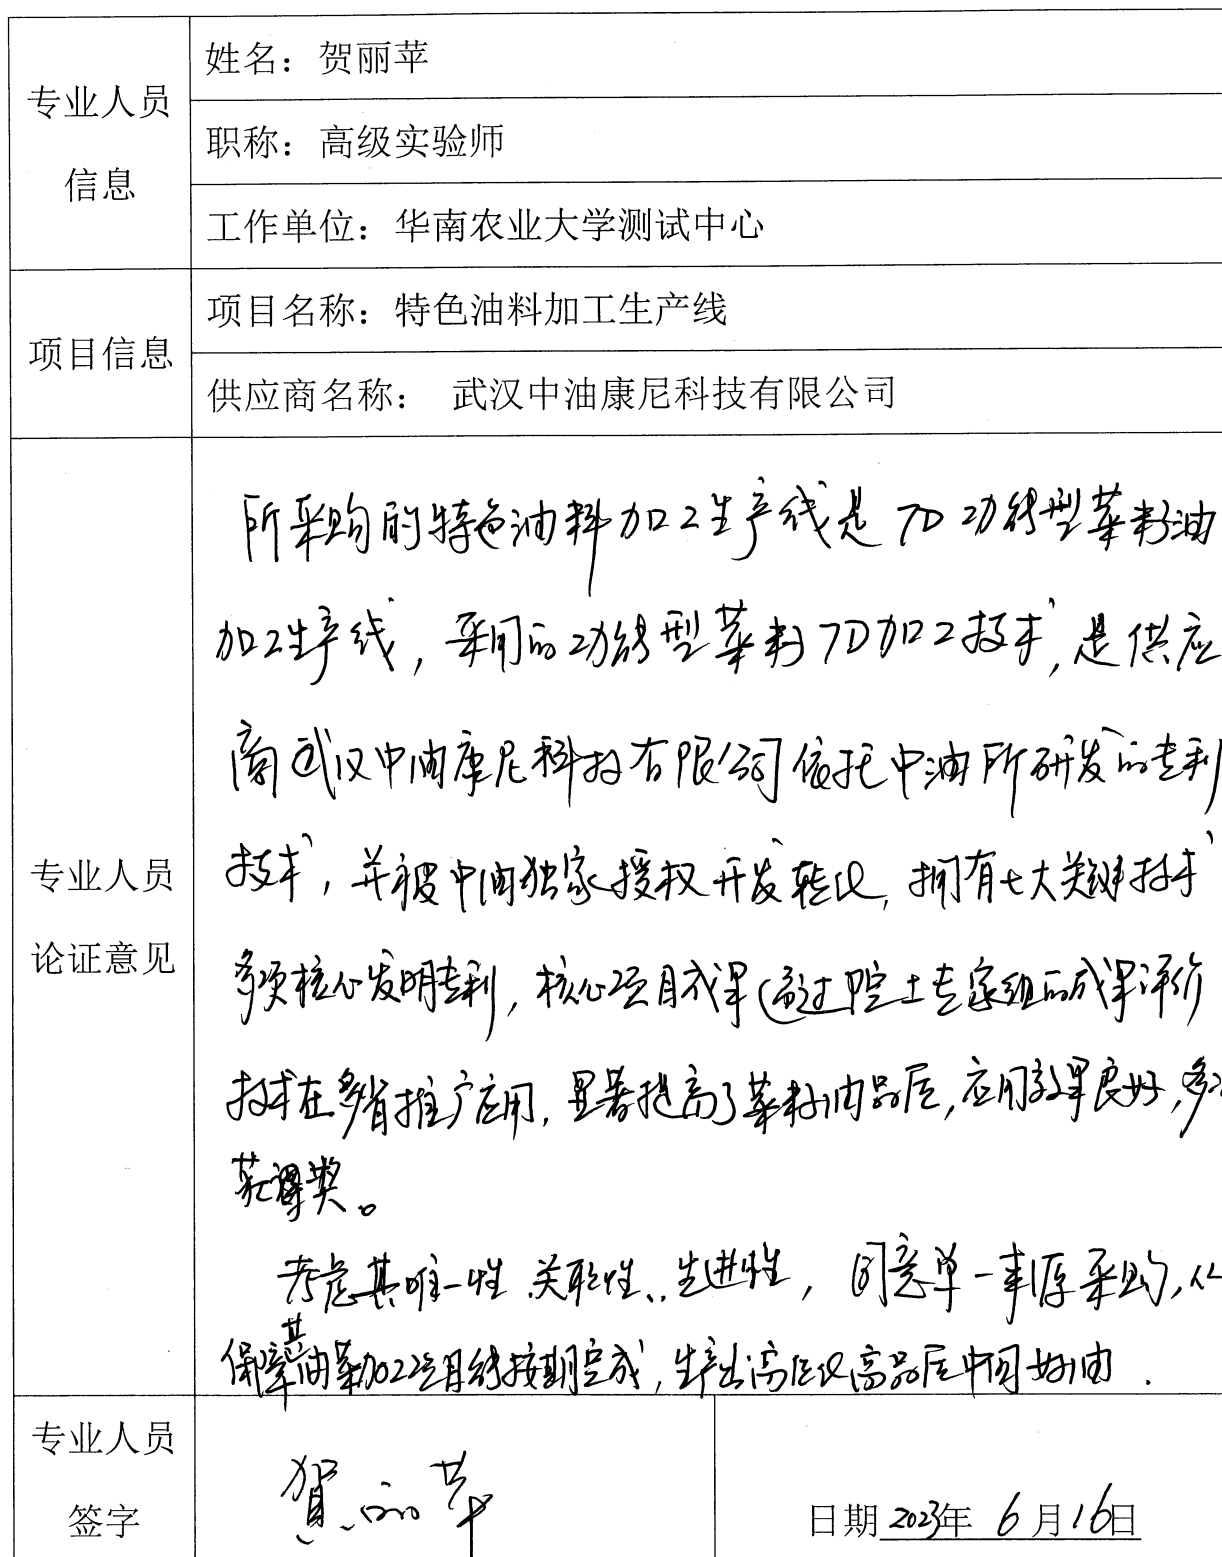 专业人员
信息
姓名：贺丽苹
职称：高级实验师
工作单位：华南农业大学测试中心
项目信息
项目名称：特色油料加工生产线
供应商名称： 武汉中油康尼科技有限公司
专业人员
论证意见
所采购的特色油料加工生产线是7D功能型菜籽油
加工生产线，采用的功能型菜籽7D加工技术，是供应
商武汉中油康尼科技有限公司依托中油所研发的专利
技术，并被中油独家授权开发转化，拥有七大关键技术
多项核心发明专利，核心项目成果通过院士专家组的成果评价
技术在多省推广应用，显著提高了菜籽油品质，应用效果良好，多
获得奖。
考虑其唯一性、关联性、先进性，同意单一来源采购，以
保障其油菜加工项目能按期完成，生产出高品质中国好油．
专业人员
签字
贺丽苹
日期 2023年 6月16日